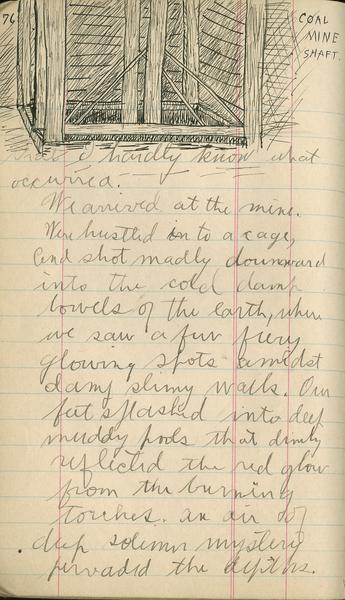 76
COAL
MINE
SHAFT.
that I hardly know what
occurred.
We arrived at the mine.
Were hustled into a cage,
and shot madly downward
into the cold damp
bowels of the earth, where
we saw a few fiery
glowing spots amidst
damp slimy walls. Our
feet splashed into deep
muddy pools that dimly
reflected the red glow
from the burning
torches. an air of
deep solemn mystery
pervaded the depths.